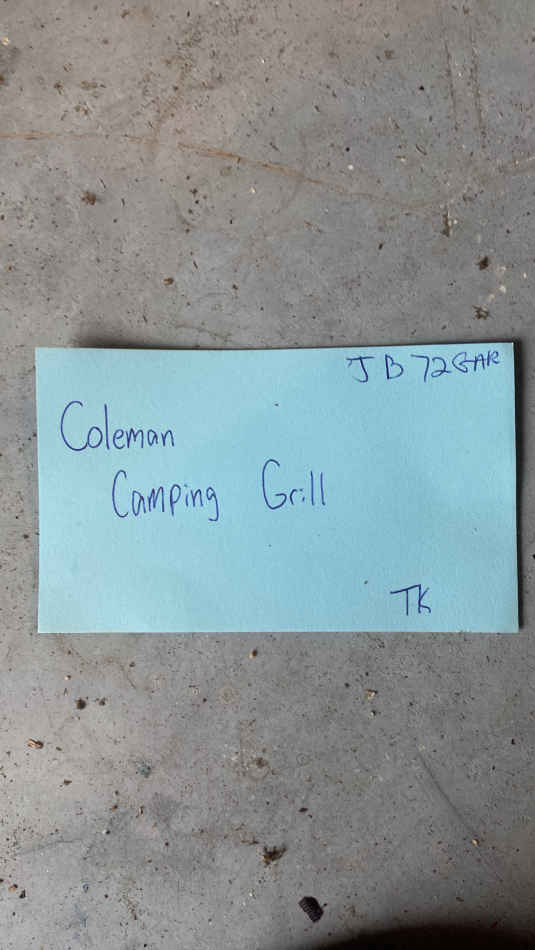 JB72GAR
Coleman
Camping Grill
TK